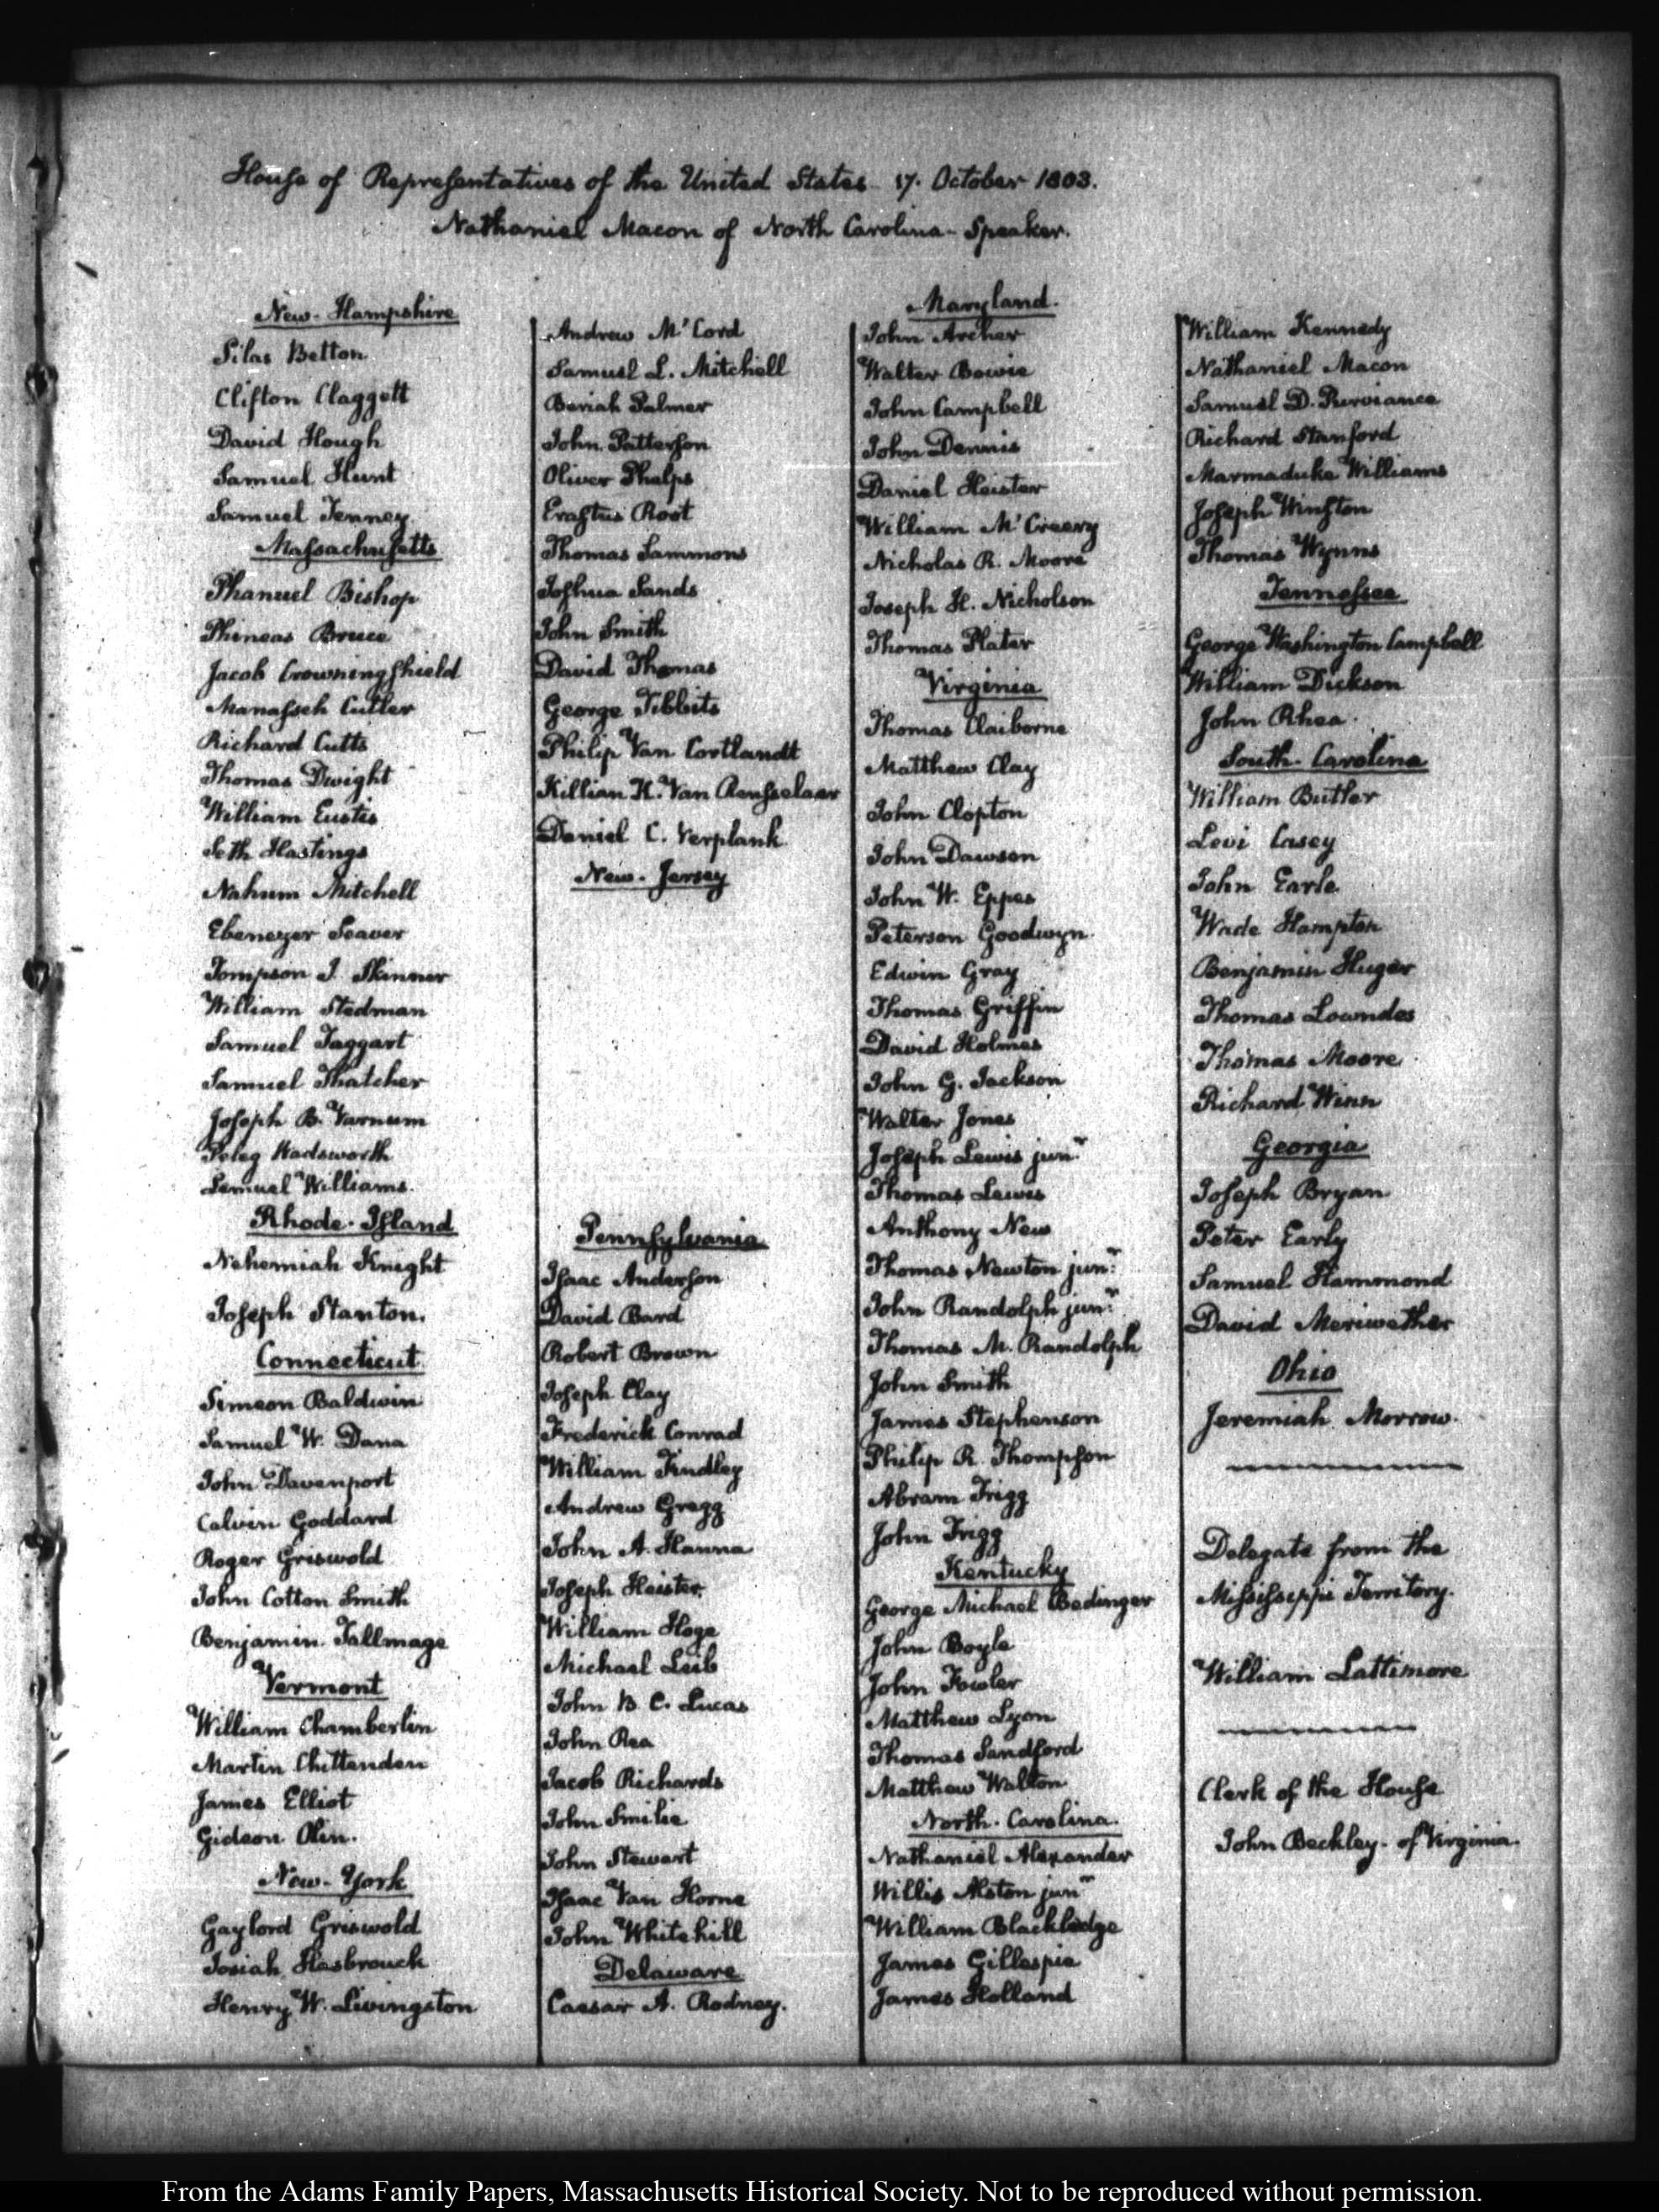 House of Representatives of the United States 17. October 1803.
Nathaniel Macon of North Carolina - Speaker.
New-Hampshire
Silas Betton
Clifton Claggett
David Hough
Samuel Hunt
Samuel Tenney
Massachusetts
Phanuel Bishop
Phineas Bruce
Jacob Crowningshield
Manasseh Cutler
Richard Cutts
Thomas Dwight
William Eustis
Seth Hastings
Nahum Mitchell
Ebenezer Seaver
Tompson J. Skinner
William Stedman
Samuel Taggart
Samuel Thatcher
Joseph B. Varnum
Peleg Wadsworth
Lemuel Williams.
Rhode-Island
Nehemiah Knight
Joseph Stanton.
Connecticut
Simeon Baldwin
Samuel W. Dana
John Davenport
Calvin Goddard
Roger Griswold
John Cotton Smith
Benjamin Tallmage
Vermont
William Chamberlin
Martin Chittenden
James Elliot
Gideon Olin.
New-York
Gaylord Griswold
Josiah Hasbrouck
Henry W. Livingston
Andrew Mc'Cord
Samuel L. Mitchell
Beriah Palmer
John Patterson
Oliver Phelps
Erastus Root
Thomas Sammons
Joshua Sands
John Smith
David Thomas
George Tibbits
Philip Van Cortlandt
Killian K. Van Rensselaer
Daniel C. Verplank
New-Jersey
Pennsylvania
Isaac Anderson
David Bard
Robert Brown
Joseph Clay
Frederick Conrad
William Findley
Andrew Gregg
John A. Hanna
Joseph Heister
William Hoge
Michael Leib
John B. C. Lucas
John Rea
Jacob Richards
John Smilie
John Stewart
Isaac Van Horne
John Whitehill
Delaware
Caesar A. Rodney.
Maryland.
John Archer
Walter Bowie
John Campbell
John Dennis
Daniel Heister
William Mc'Creery
Nicholas R. Moore
Joseph H. Nicholson
Thomas Plater
Virginia
Thomas Claiborne
Matthew Clay
John Clopton
John Dawson
John W. Eppes
Peterson Goodwyn.
Edwin Gray
Thomas Griffin
David Holmes
John G. Jackson
Walter Jones
Joseph Lewis junr.
Thomas Lewis
Anthony New
Thomas Newton junr.
John Randolph junr.
Thomas M. Randolph
John Smith
James Stephenson
Philip R. Thompson
Abram Trigg
John Trigg
Kentucky
George Michael Bedinger
John Boyle
John Fowler
Matthew Lyon
Thomas Sandford
Matthew Walton
North-Carolina.
Nathaniel Alexander
Willis Alston junr
William Blackledge
James Gillespie
James Holland
William Kennedy
Nathaniel Macon
Samuel D. Purviance
Richard Stanford
Marmaduke Williams
Joseph Winston
Thomas Wynns
Tennessee
George Washington Campbell
William Dickson
John Rhea.
South-Carolina
William Butler
Levi Casey
John Earle
Wade Hampton
Benjamin Huger
Thomas Lowndes
Thomas Moore
Richard Winn
Georgia
Joseph Bryan
Peter Early
Samuel Hammond
David Meriwether
Ohio
Jeremiah Morrow.
Delegate from the
Mississippi Territory.
William Lattimore
Clerk of the House
John Beckley - of Virginia.
From the Adams Family Papers, Massachusetts Historical Society. Not to be reproduced without permission.